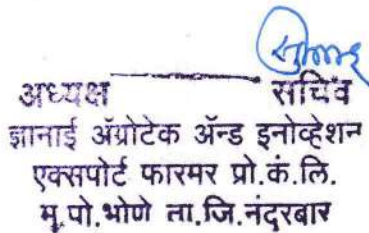 अध्यक्ष सचिव
ज्ञानाई ॲग्रोटेक ॲन्ड इनोव्हेशन
एक्सपोर्ट फारमर प्रो.कं.लि.
मु.पो.भोणे ता.जि.नंदरबार